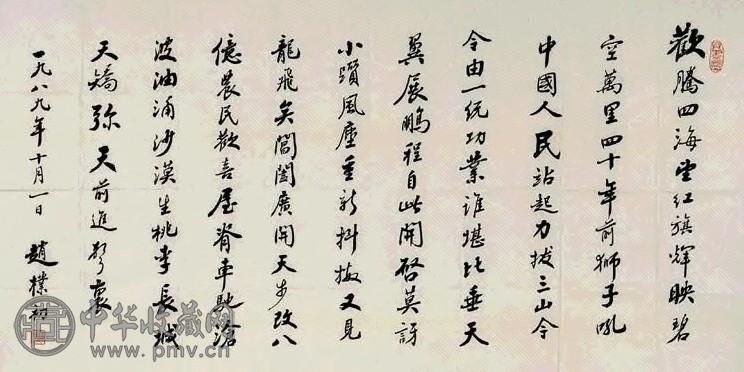 歡騰四海望红旗輝映碧
空萬里四十年前獅子吼
中國人民站起力拔三山令
令由一統功業誰堪比垂天
翼展鵬程自此開啓莫訝
小躓風塵重新抖擻又見
龍飛矣閶闔廣開天步改八
億農民歡喜屋脊車馳滄
波油涌沙漠生桃李長城
夭矯弥天前進聲裏
一九八九年十月一日 趙樸初
中华收藏网
www.pmv.cn